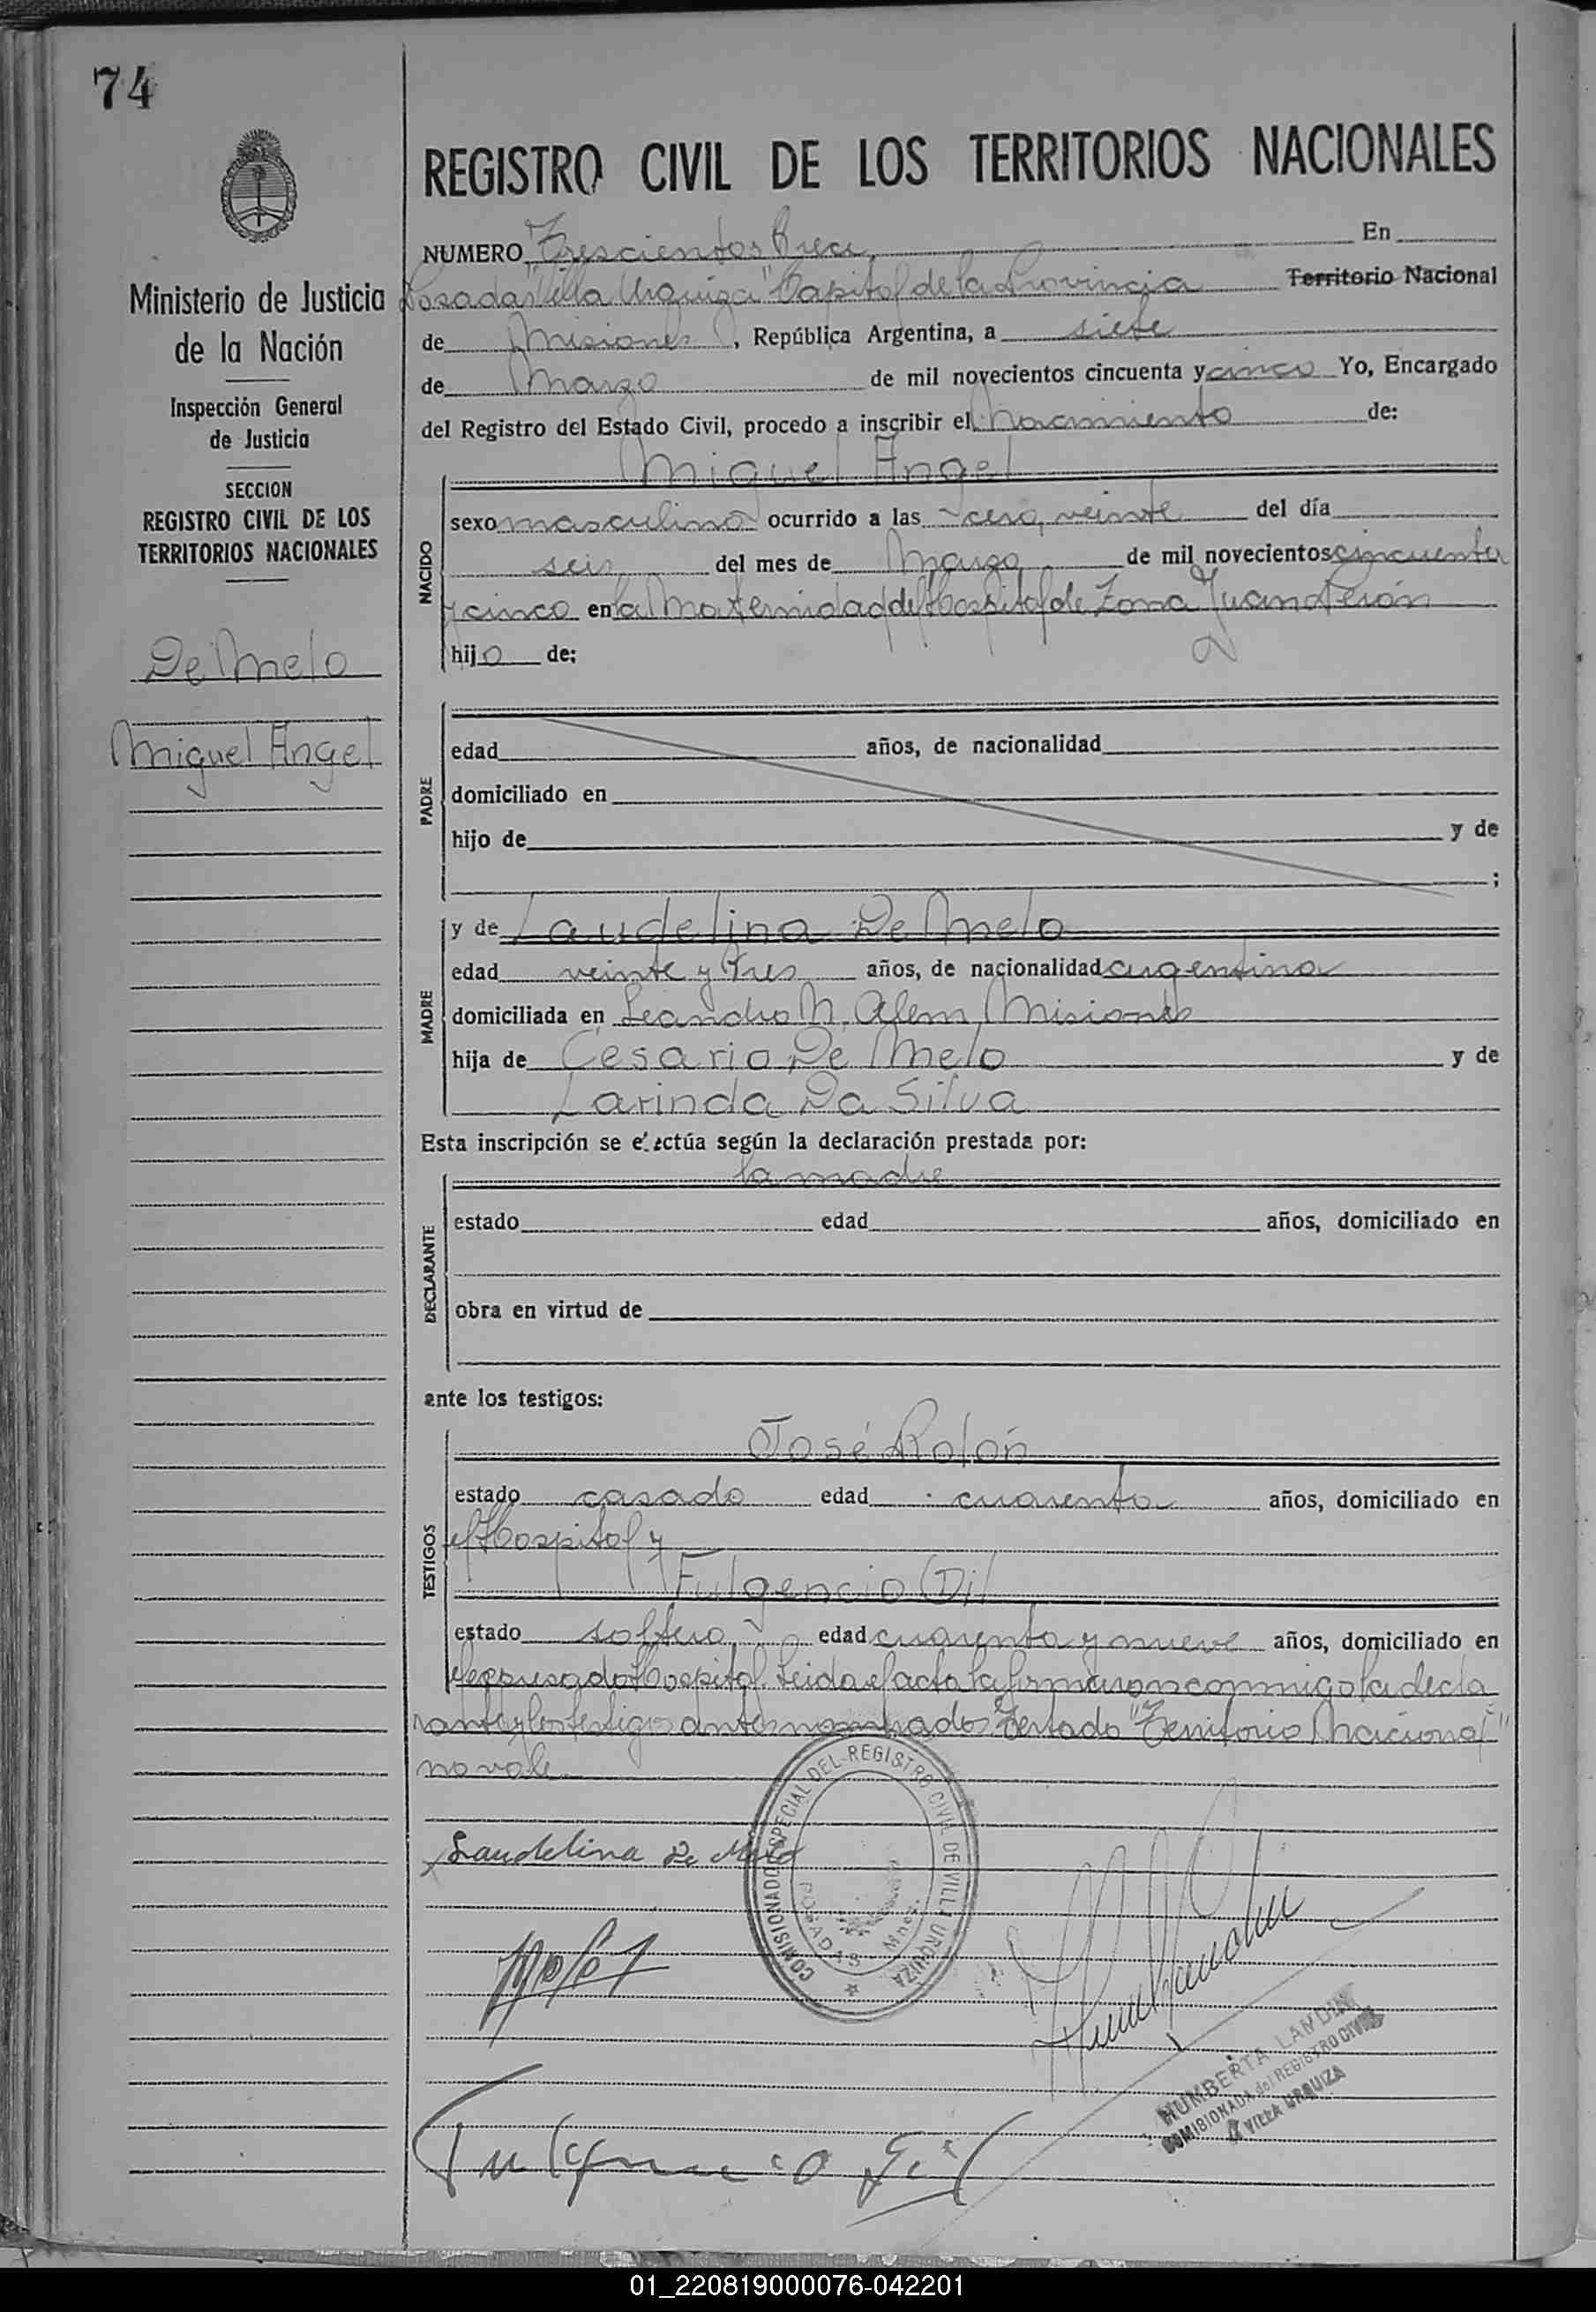 74
REGISTRO CIVIL DE LOS TERRITORIOS NACIONALES
Ministerio de Justicia
de la Nación
Inspección General
de Justicia
SECCION
REGISTRO CIVIL DE LOS
TERRITORIOS NACIONALES
De Melo
Miguel Angel
NUMERO Trescientos trece En
Posadas "Villa Urquiza" Capital de la Provincia Territorio Nacional
de Misiones, República Argentina, a siete
de Marzo de mil novecientos cincuenta y cinco Yo, Encargado
del Registro del Estado Civil, procedo a inscribir el Nacimiento de:
Miguel Angel
NACIDO
sexo masculino ocurrido a las cero, veinte del día
seis del mes de Marzo de mil novecientos cincuenta
y cinco en la Maternidad del Hospital de Zona Juan Perón
hijo de:
PADRE
edad años, de nacionalidad
domiciliado en
hijo de y de
;
MADRE
y de Laudelina De Melo
edad veinte y tres años, de nacionalidad argentina
domiciliada en Leandro N. Alem, Misiones
hija de Cesario De Melo y de
Larinda Da Silva
Esta inscripción se efectúa según la declaración prestada por:
la madre
DECLARANTE
estado edad años, domiciliado en
obra en virtud de
ante los testigos:
TESTIGOS
José Rolón
estado casado edad cuarenta años, domiciliado en
el Hospital y
Fulgencio Gil
estado soltero, edad cuarenta y nueve años, domiciliado en
el expresado Hospital. Leida el acta la firmaron conmigo la decla
rante y los testigos antes nombrados Testado "Territorio Nacional"
no vale.
Laudelina De Melo
COMISIONADO ESPECIAL DEL REGISTRO CIVIL DE VILLA URQUIZA
POSADAS Mnes.
HUMBERTA LANDIN
COMISIONADA del REGISTRO CIVIL
VILLA URQUIZA
Fulgencio Gil
01_220819000076-042201